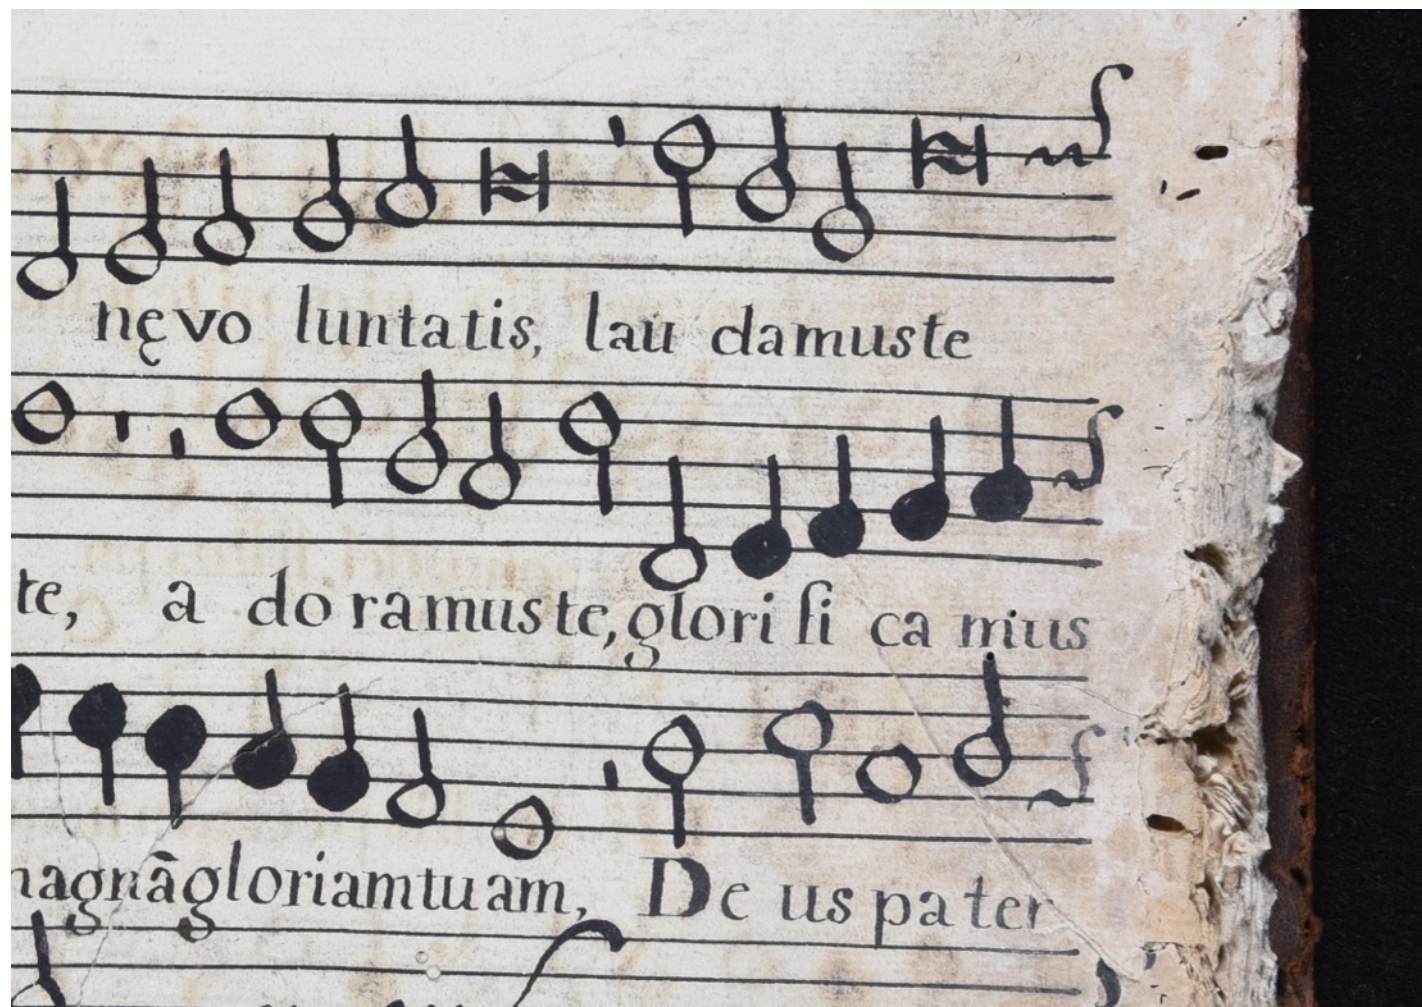 nęvo luntatis, lau damuste
te, a do ramuste, glori fi ca mius
magnāgloriamtuam, De us pa ter